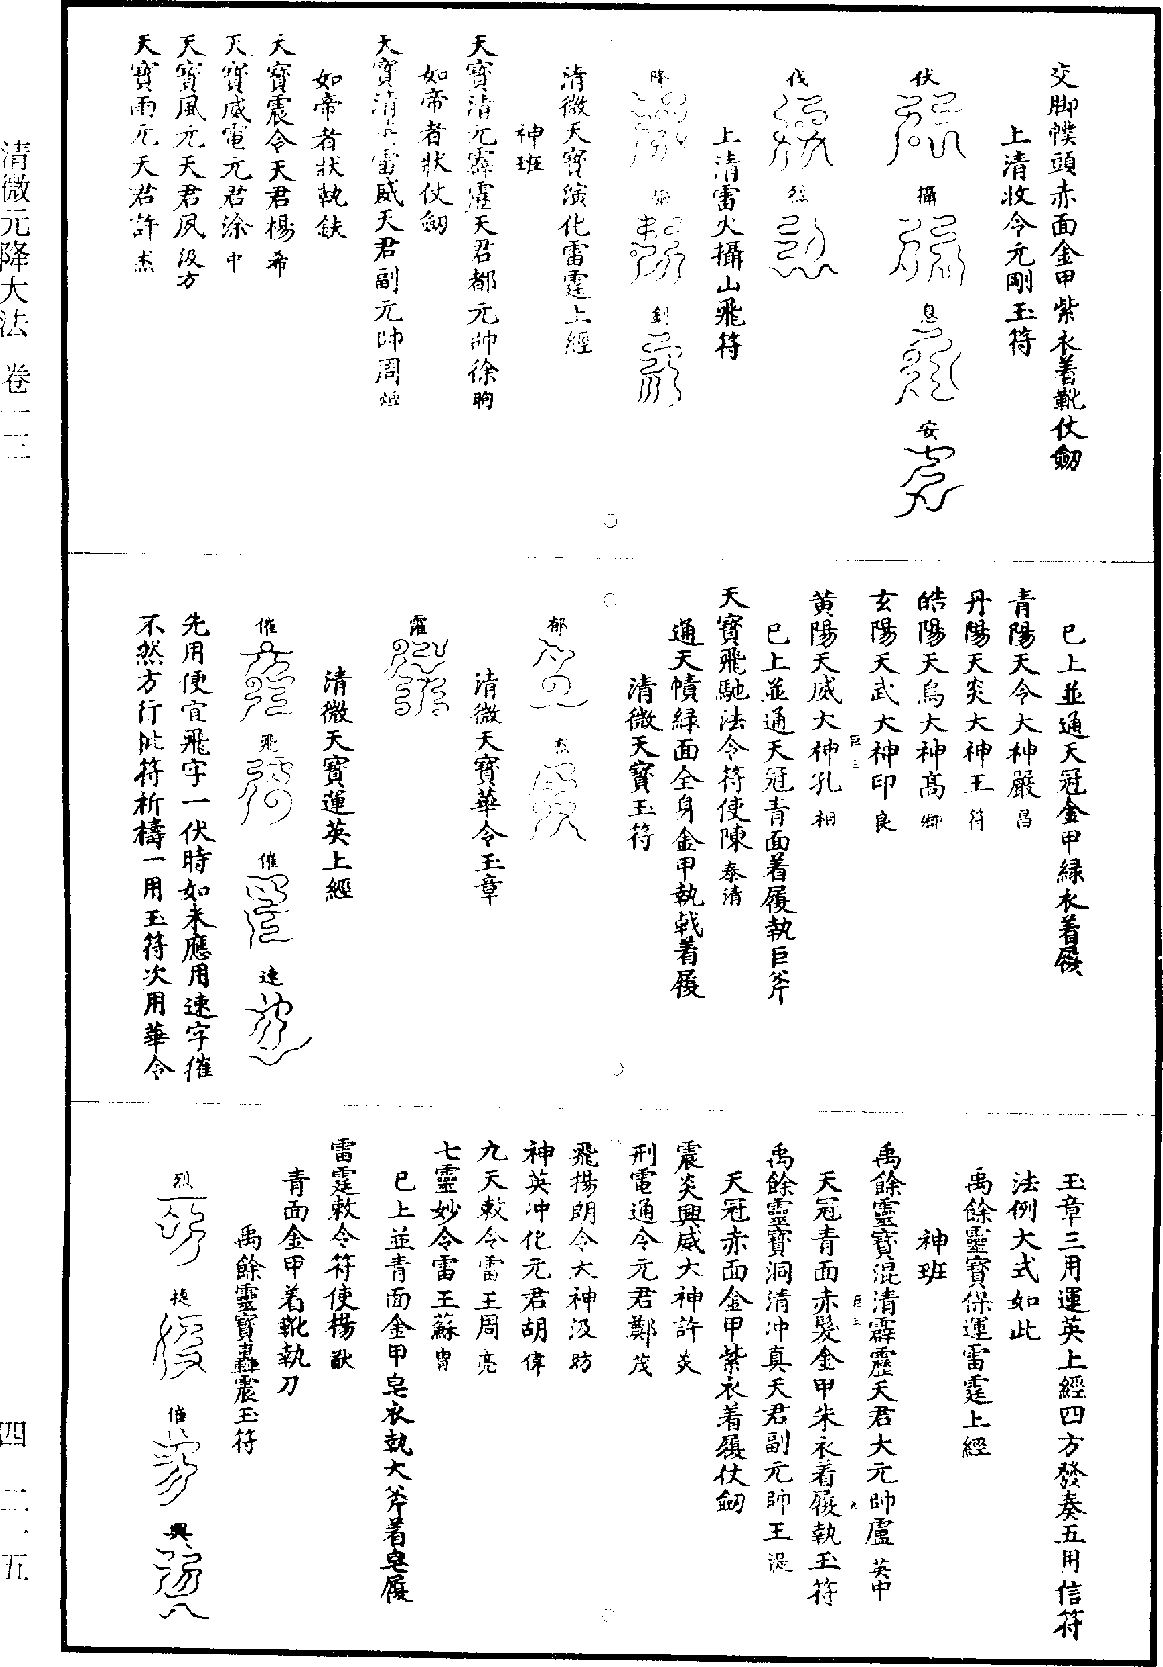 交脚幞頭赤面金甲紫衣着靴仗劒
上清收令元剛玉符
伏
攝
息
安
伐
上清雷火攝山飛符
降
清微天寶演化雷霆上經
神班
天寶清元霹靂天君都元帥徐昫
如帝者狀仗劒
天寶清雷威天君副元帥周
如帝者狀執鈇
天寶震令天君楊希
天寶威電元君涂中
天寶風元天君夙汲方
天寶雨元天君許杰
已上並通天冠金甲緑衣着履
青陽天令大神嚴昌
丹陽天炎大神王符
皓陽天烏大神高卿
玄陽天武大神印良
黄陽天威大神孔相
已上並通天冠青面着履執巨斧
天寶飛馳法令符使陳泰清
通天幘緑面全身金甲執戟着履
清微天寶玉符
郁
清微天寶華令玉章
羅
清微天寶運英上經
催
飛
催
速
先用便宜飛字一伏時如未應用速字催
不然方行此符祈禱一用玉符次用華令
玉章三用運英上經四方發奏五用信符
法例大式如此
禹餘靈寶保運雷霆上經
神班
禹餘靈寶混清霹靂天君大元帥盧英中
天冠青面赤髮金甲朱衣着履執玉符
禹餘靈寶洞清冲真天君副元帥王湜
天冠赤面金甲紫衣着履仗劒
震炎興威大神許炎
刑電通令元君鄭茂
飛揚朗令大神汲昉
神英冲化元君胡偉
九天敕令雷王周亮
七靈妙令雷王蘇胄
已上並青面金甲皂衣執大斧着皂履
雷霆敕令符使楊猷
青面金甲着靴執刀
禹餘靈寶轟震玉符
烈
捉
催
興
清微元降大法 卷一三
四 二一五